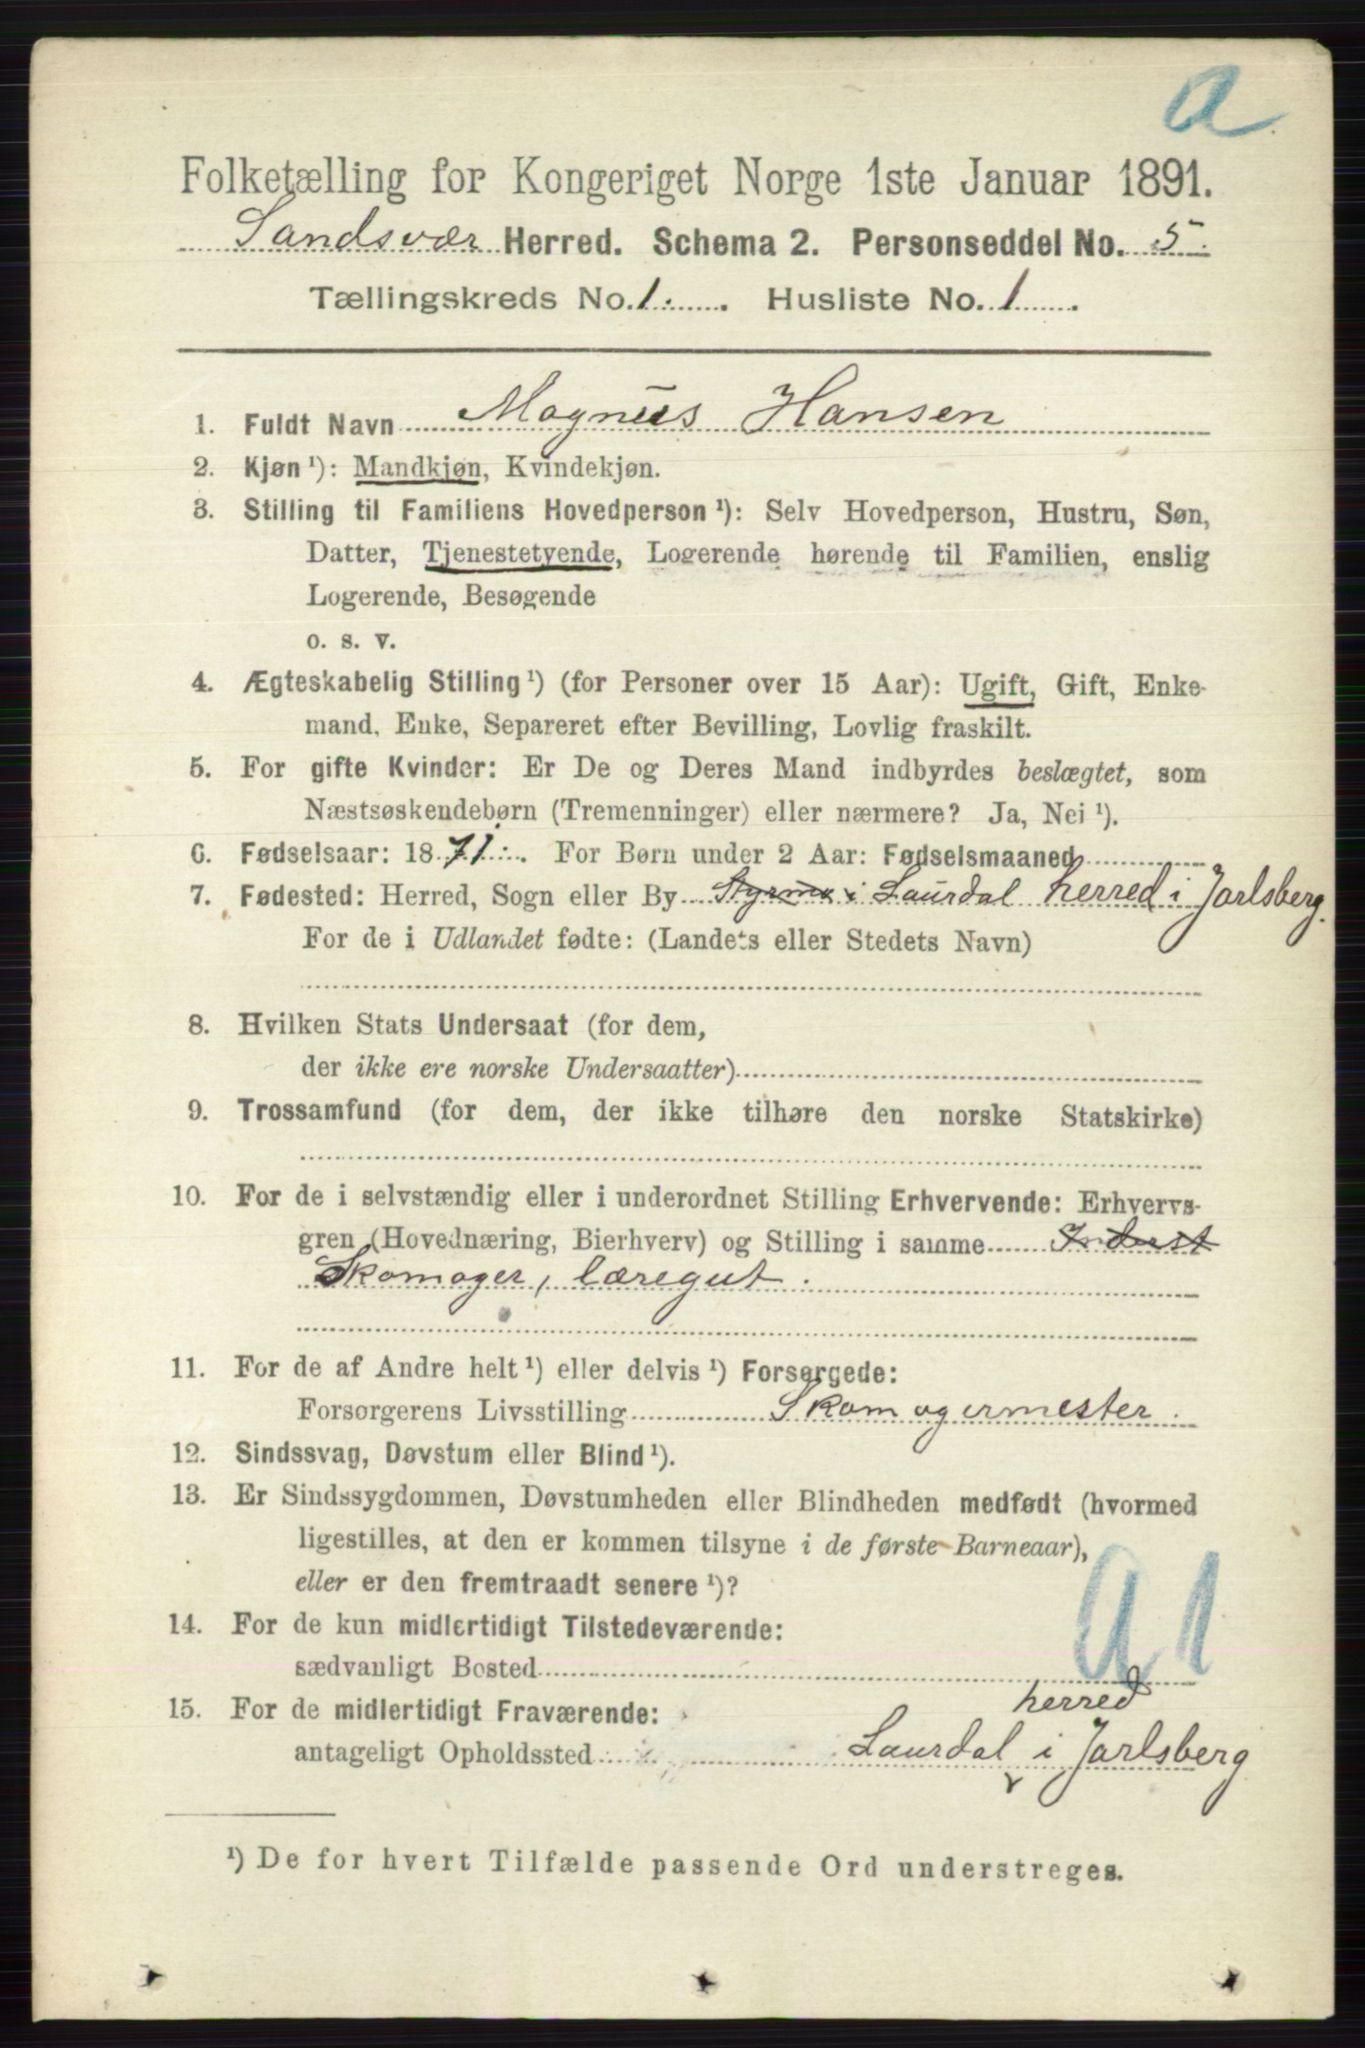 a
Folketælling for Kongeriget Norge 1ste Januar 1891.
Sandsvær Herred. Schema 2. Personseddel No. 5.
Tællingskreds No. 1. Husliste No. 1.
1. Fuldt Navn Magnus Hansen
2. Kjøn ¹): Mandkjøn, Kvindekjøn.
3. Stilling til Familiens Hovedperson ¹): Selv Hovedperson, Hustru, Søn,
Datter, Tjenestetyende, Logerende hørende til Familien, enslig
Logerende, Besøgende
o. s. v.
4. Ægteskabelig Stilling ¹) (for Personer over 15 Aar): Ugift, Gift, Enke-
mand, Enke, Separeret efter Bevilling, Lovlig fraskilt.
5. For gifte Kvinder: Er De og Deres Mand indbyrdes beslægtet, som
Næstsøskendebørn (Tremenninger) eller nærmere? Ja, Nei ¹).
6. Fødselsaar: 1871. For Børn under 2 Aar: Fødselsmaaned
7. Fødested: Herred, Sogn eller By i Laurdal herred i Jarlsberg.
For de i Udlandet fødte: (Landets eller Stedets Navn)
8. Hvilken Stats Undersaat (for dem,
der ikke ere norske Undersaatter)
9. Trossamfund (for dem, der ikke tilhøre den norske Statskirke)
10. For de i selvstændig eller i underordnet Stilling Erhvervende: Erhvervs-
gren (Hovednæring, Bierhverv) og Stilling i samme Inderst
Skomager, læregut.
11. For de af Andre helt ¹) eller delvis ¹) Forsørgede:
Forsørgerens Livsstilling Skomagermester.
12. Sindssvag, Døvstum eller Blind ¹).
13. Er Sindssygdommen, Døvstumheden eller Blindheden medfødt (hvormed
ligestilles, at den er kommen tilsyne i de første Barneaar),
eller er den fremtraadt senere ¹)?
a 1
14. For de kun midlertidigt Tilstedeværende:
sædvanligt Bosted
15. For de midlertidigt Fraværende:
herred
antageligt Opholdssted Laurdal i Jarlsberg
¹) De for hvert Tilfælde passende Ord understreges.